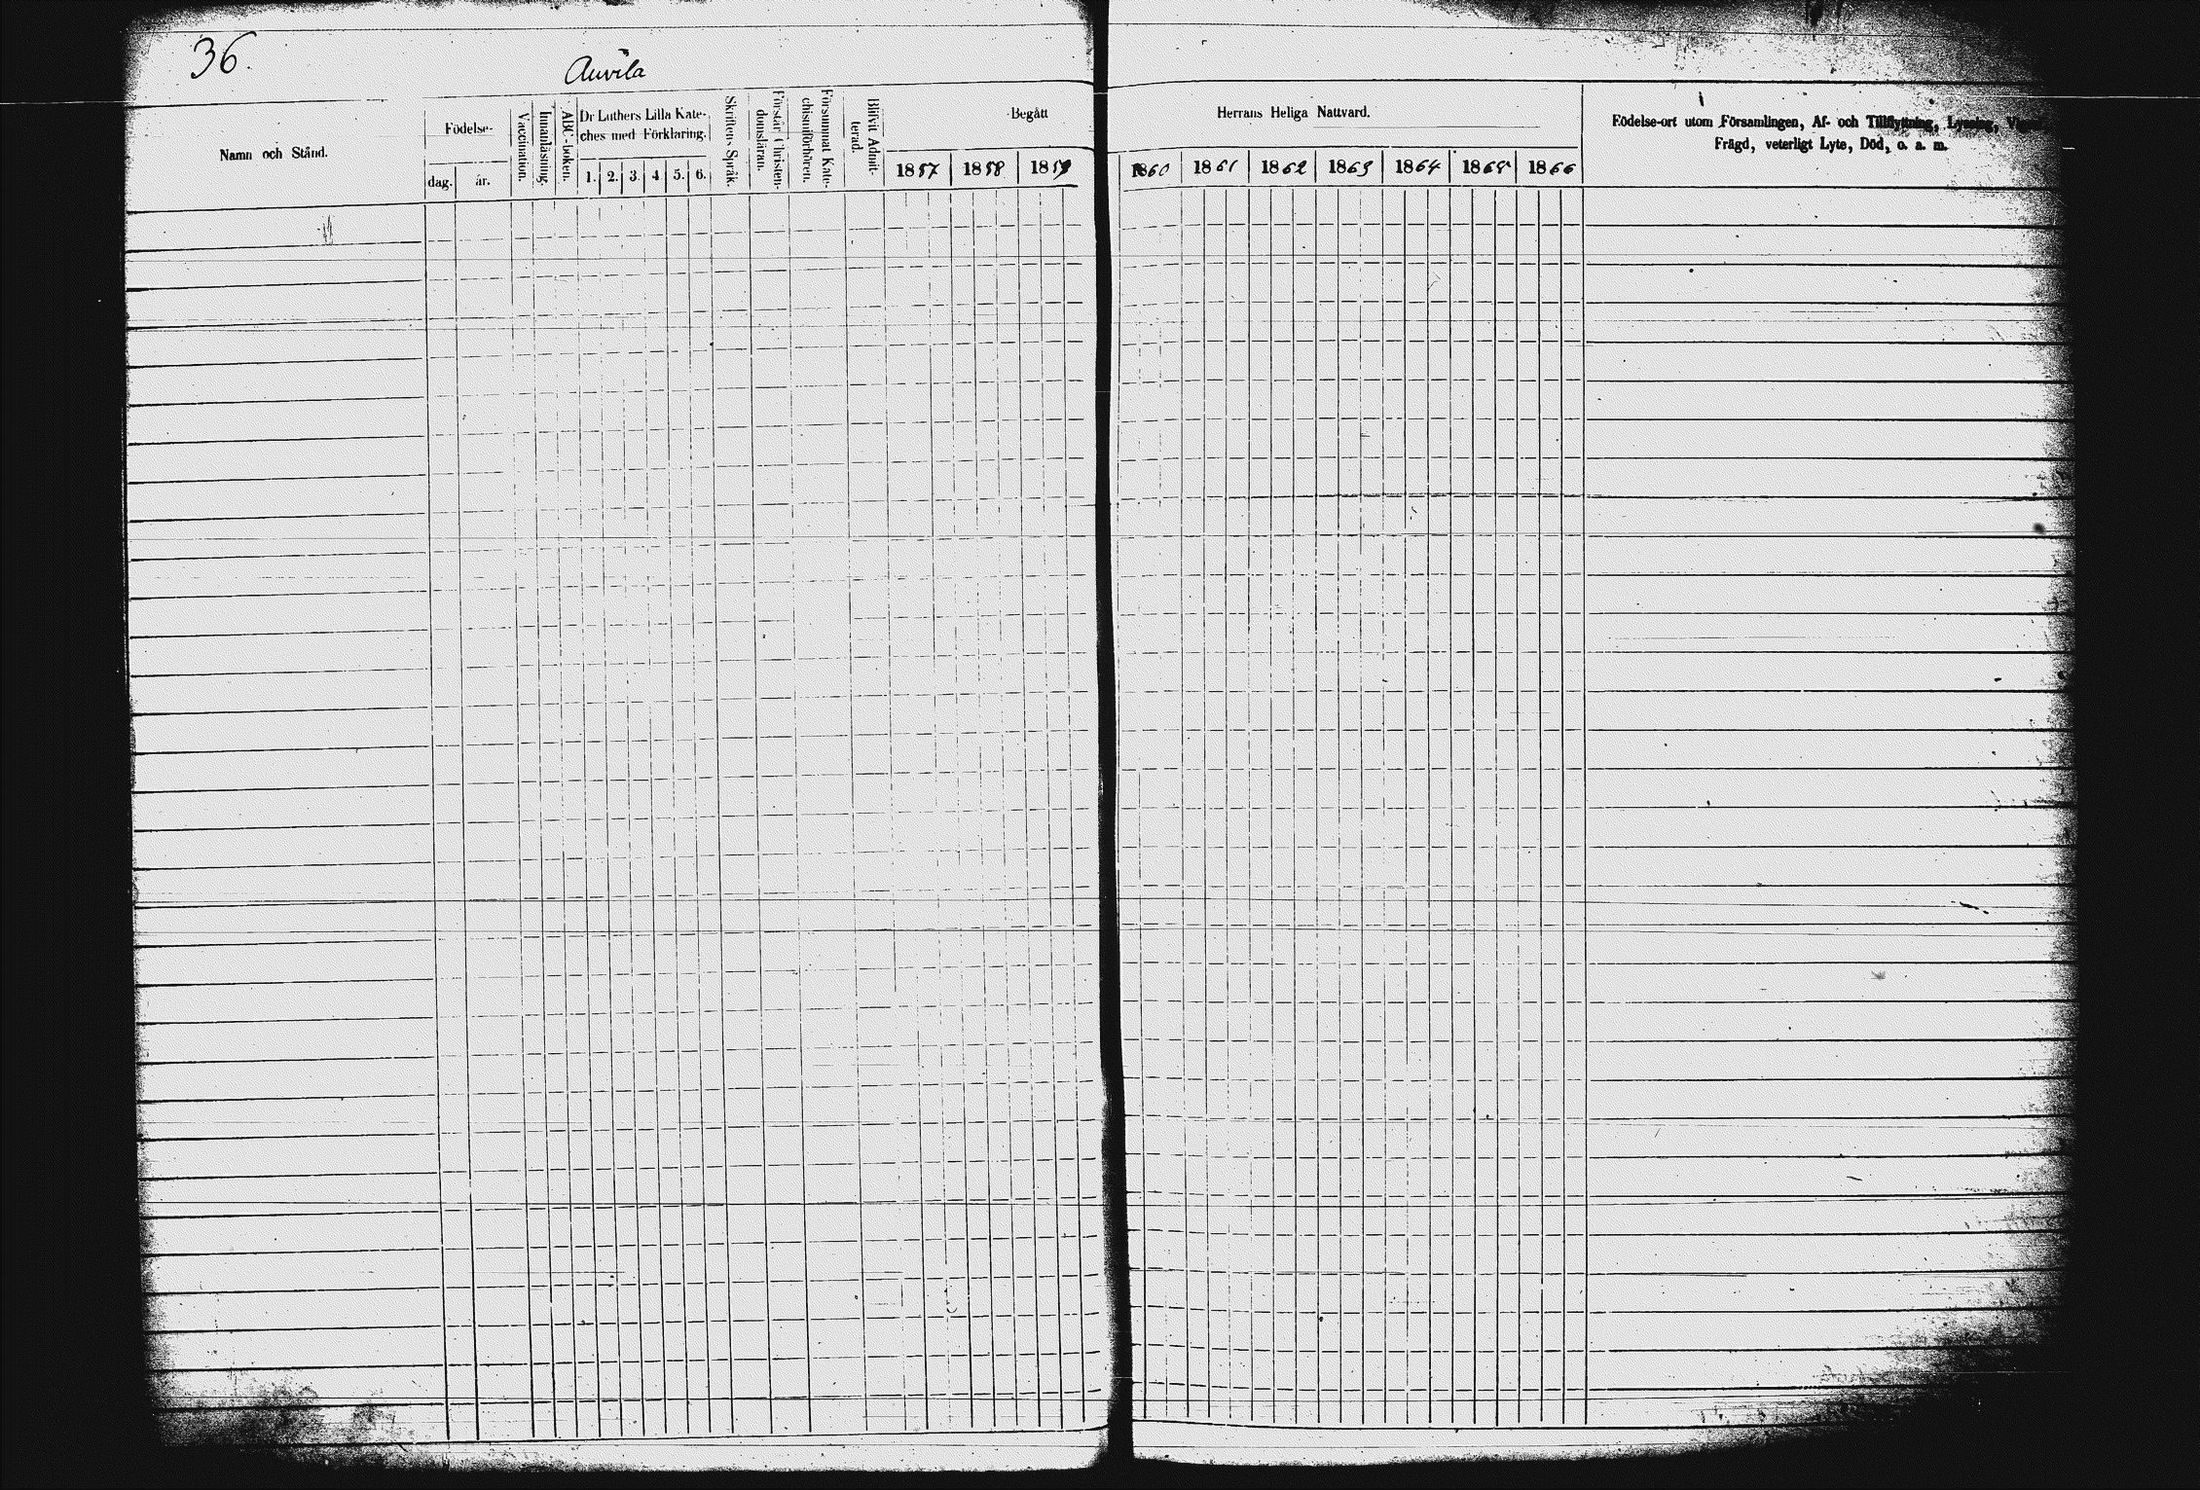 36.
Auvila
Namn och Stånd.
Födelse-
dag.
år.
Vaccination.
Innanläsning.
ABC-boken.
Dr Luthers Lilla Kate-
ches med Förklaring.
1. 2. 3. 4 5. 6.
Skriftens Språk.
Förstår Christen-
domsläran.
Försummat Kate-
chismiförhören.
Blifvit Admit-
terad.
Begått
1857 1858 1859
Herrans Heliga Nattvard.
1860 1861 1862 1863 1864 1865 1866
Födelse-ort utom Församlingen, Af- och Tillflyttning, Lysning,
Frägd, veterligt Lyte, Död, o. a. m.